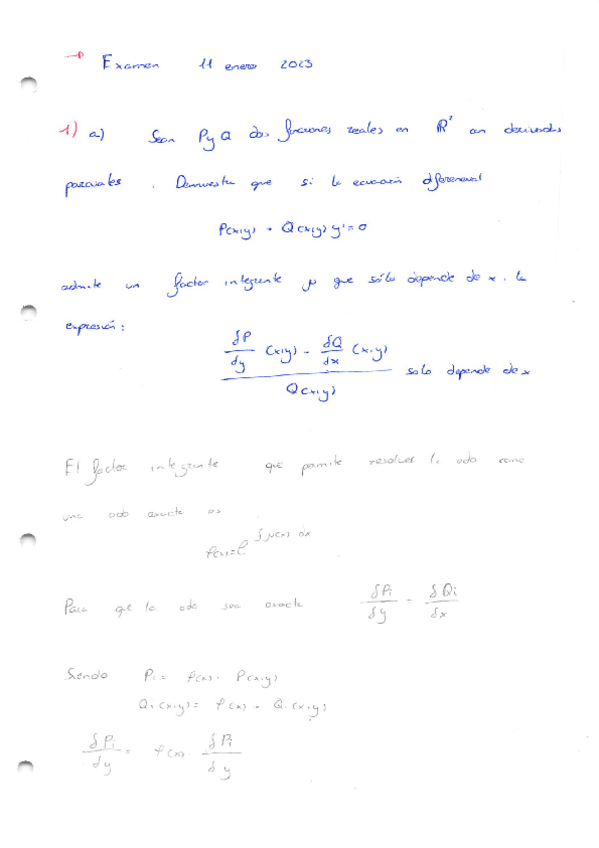 → Examen 11 enero 2023
1) a) Sean P y Q dos funciones reales en ℝ² con derivadas
parciales . Demuestra que si la ecuación diferencial
P(x,y) + Q(x,y) y' = 0
admite un factor integrante μ que sólo depende de x . la
expresión :
δP/δy (x,y) - δQ/δx (x,y)
Q(x,y)
solo depende de x
El factor integrante que permite resolver la edo como
una edo exacta es
f(x) = e^∫μ(x) dx
Para que la edo sea exacta δP₁/δy = δQ₁/δx
Siendo P₁ = f(x) · P(x,y)
Q₁(x,y) = f(x) · Q₁(x,y)
δP₁/δy = f(x) · δP₁/δy